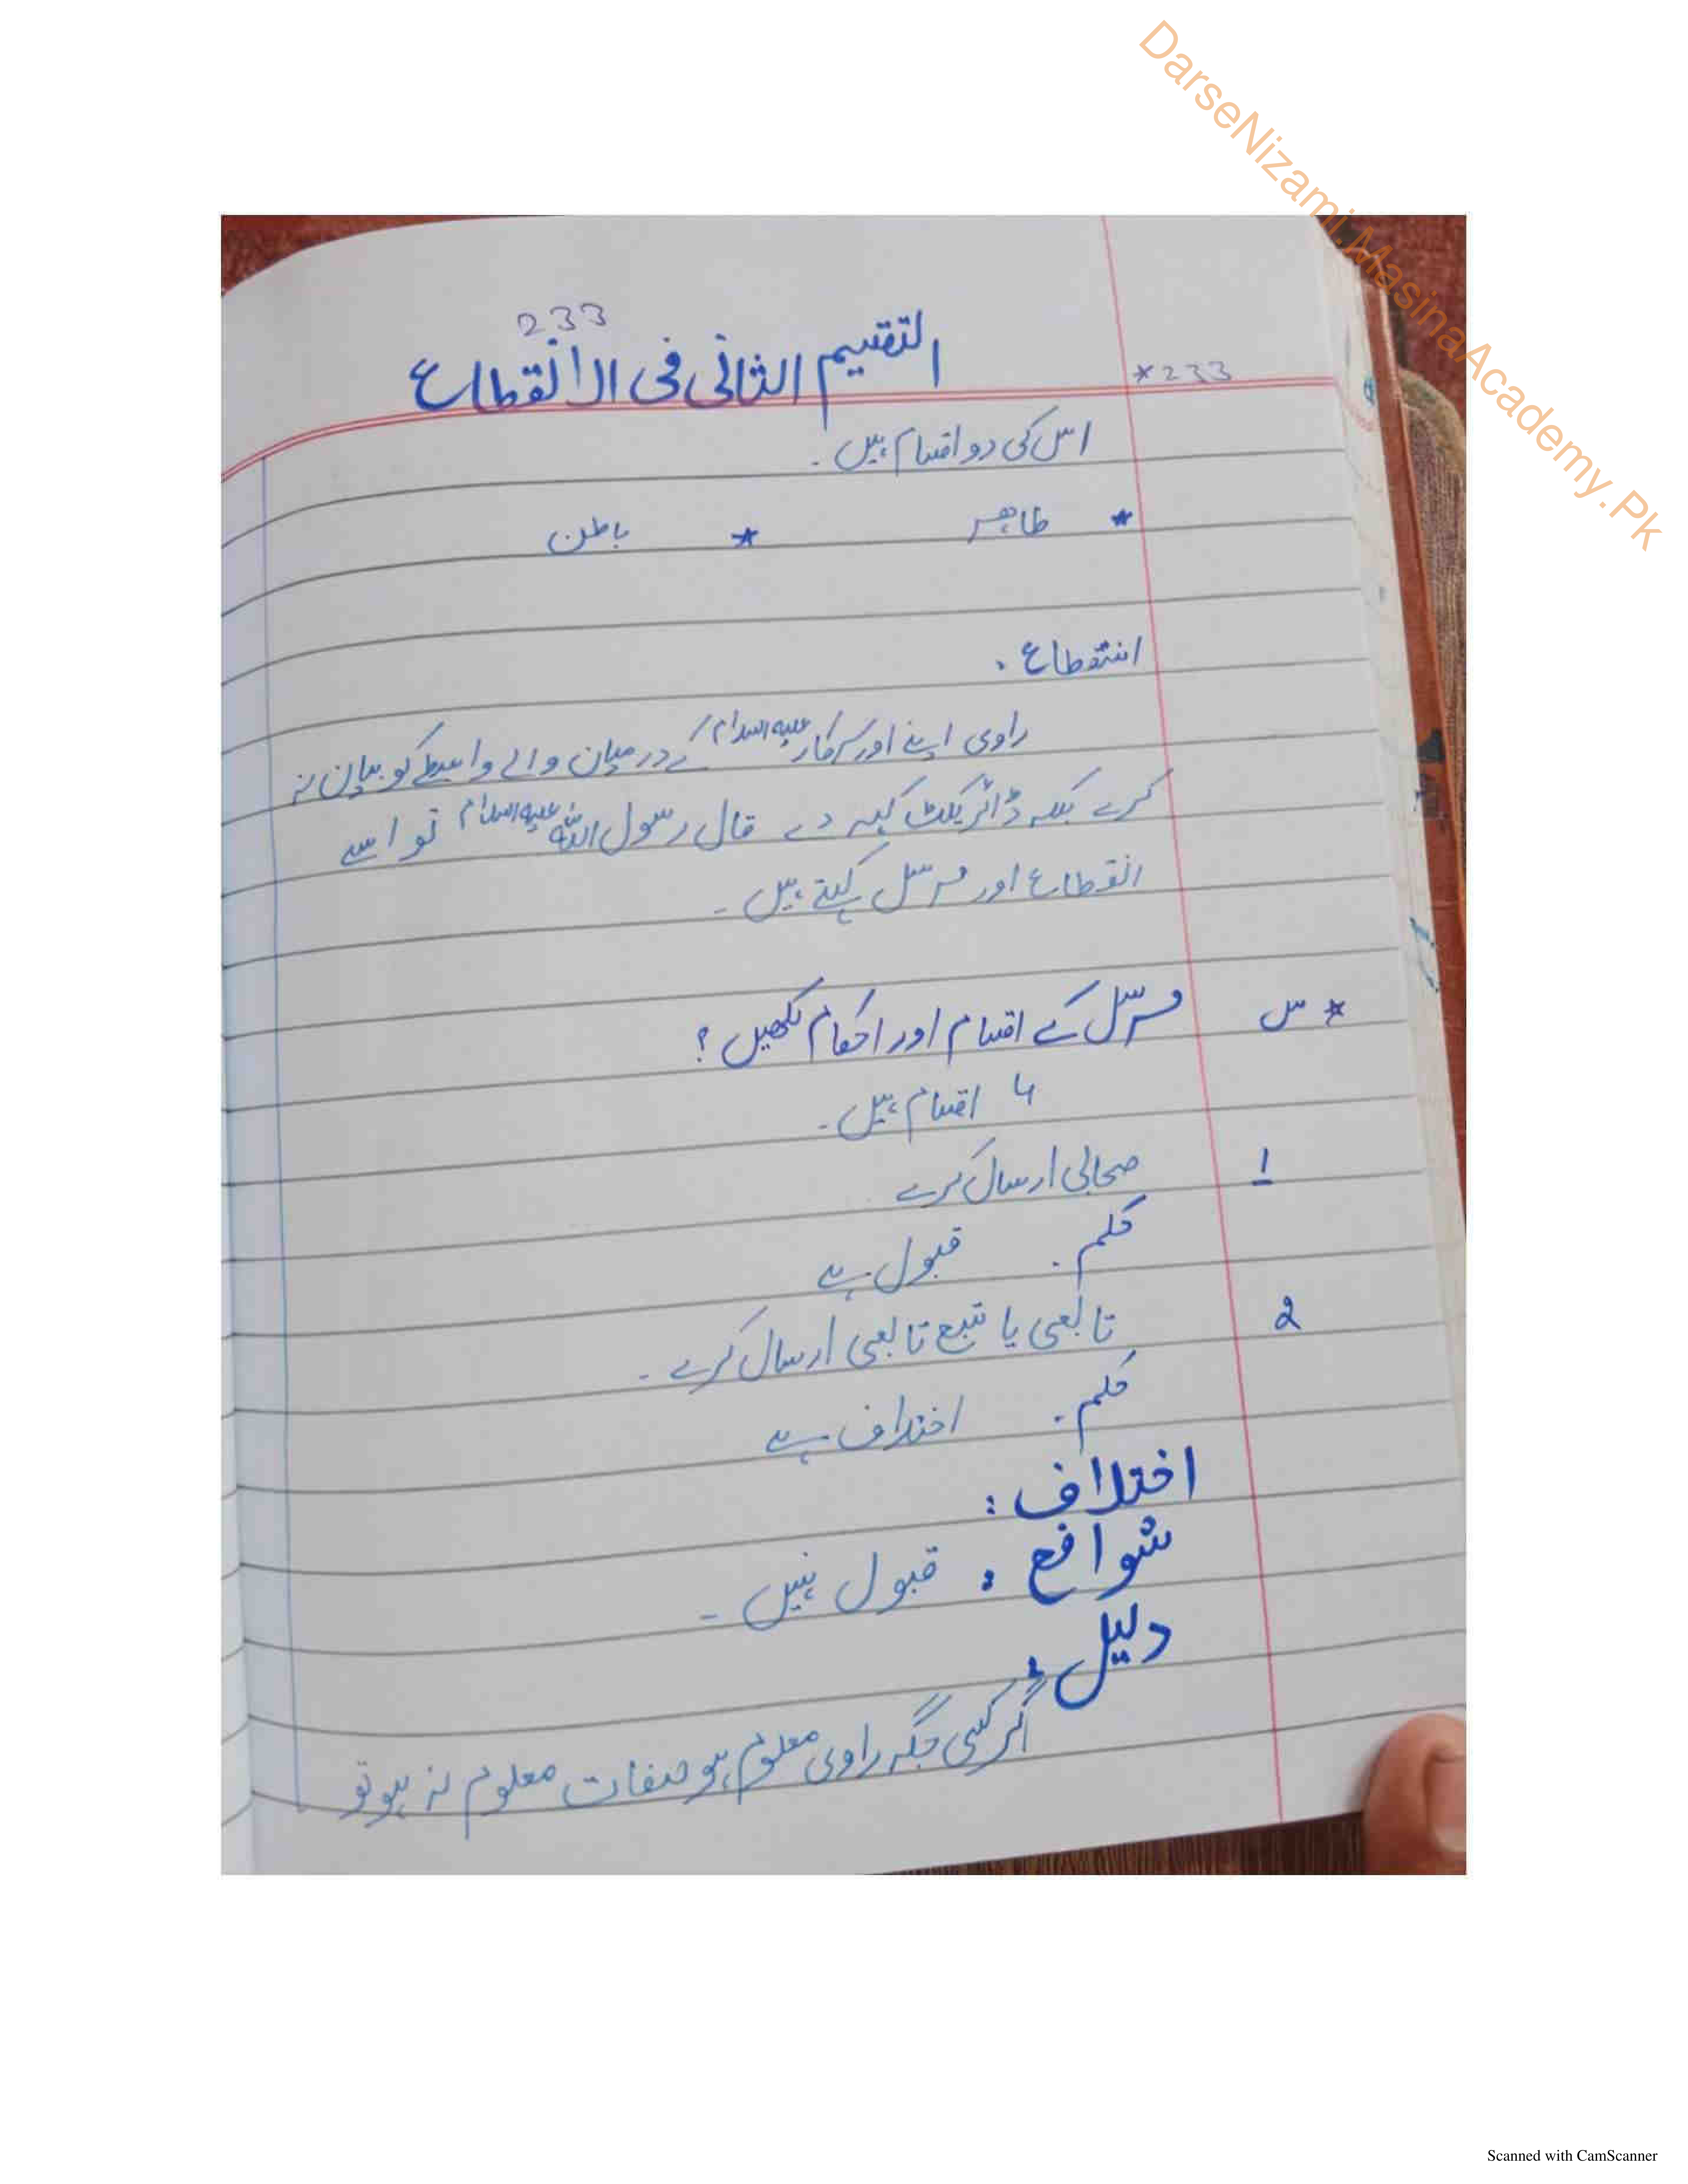 DarseNizami.MasinaAcademy.Pk
233
التقسیم الثانی فی الانقطاع
*233
اس کی دو اقسام ہیں۔
* ظاہر * باطن
انتقطاع.
راوی اپنے اور سرکار علیہ السلام کے درمیان والے واسطے کو بیان نہ
کرے بلکہ ڈائریکٹ کہہ دے قال رسول اللہ علیہ السلام تو اسے
انقطاع اور مرسل کہتے ہیں۔
* س مرسل کے اقسام اور احکام لکھیں؟
4 اقسام ہیں۔
1 صحابی ارسال کرے
حکم. قبول ہے
2 تابعی یا تبع تابعی ارسال کرے۔
حکم. اختلاف ہے
اختلاف:
شوافع: قبول نہیں۔
دلیل:
اگر کسی جگہ راوی معلوم ہو صفات معلوم نہ ہو تو
Scanned with CamScanner